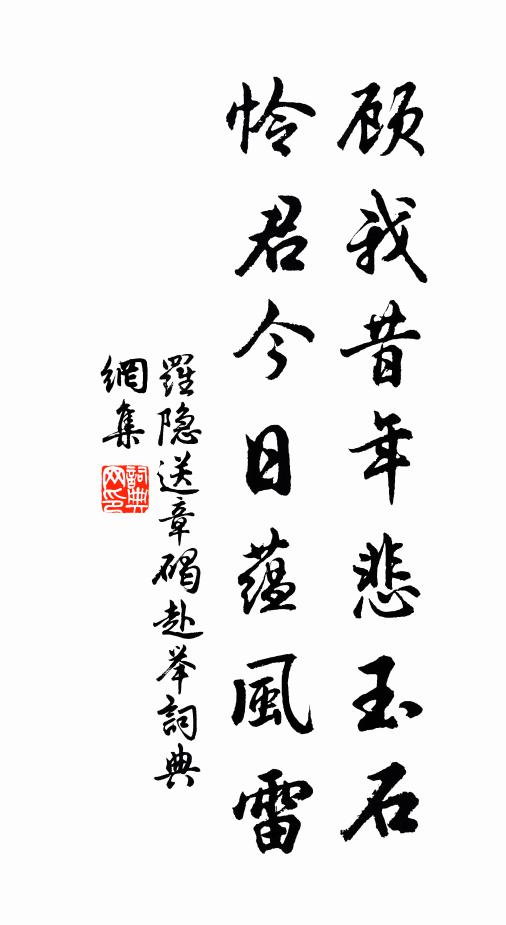 顾我昔年悲玉石
怜君今日蕴風雷
羅隐送章碣赴举詞典
網集
詞典
網印